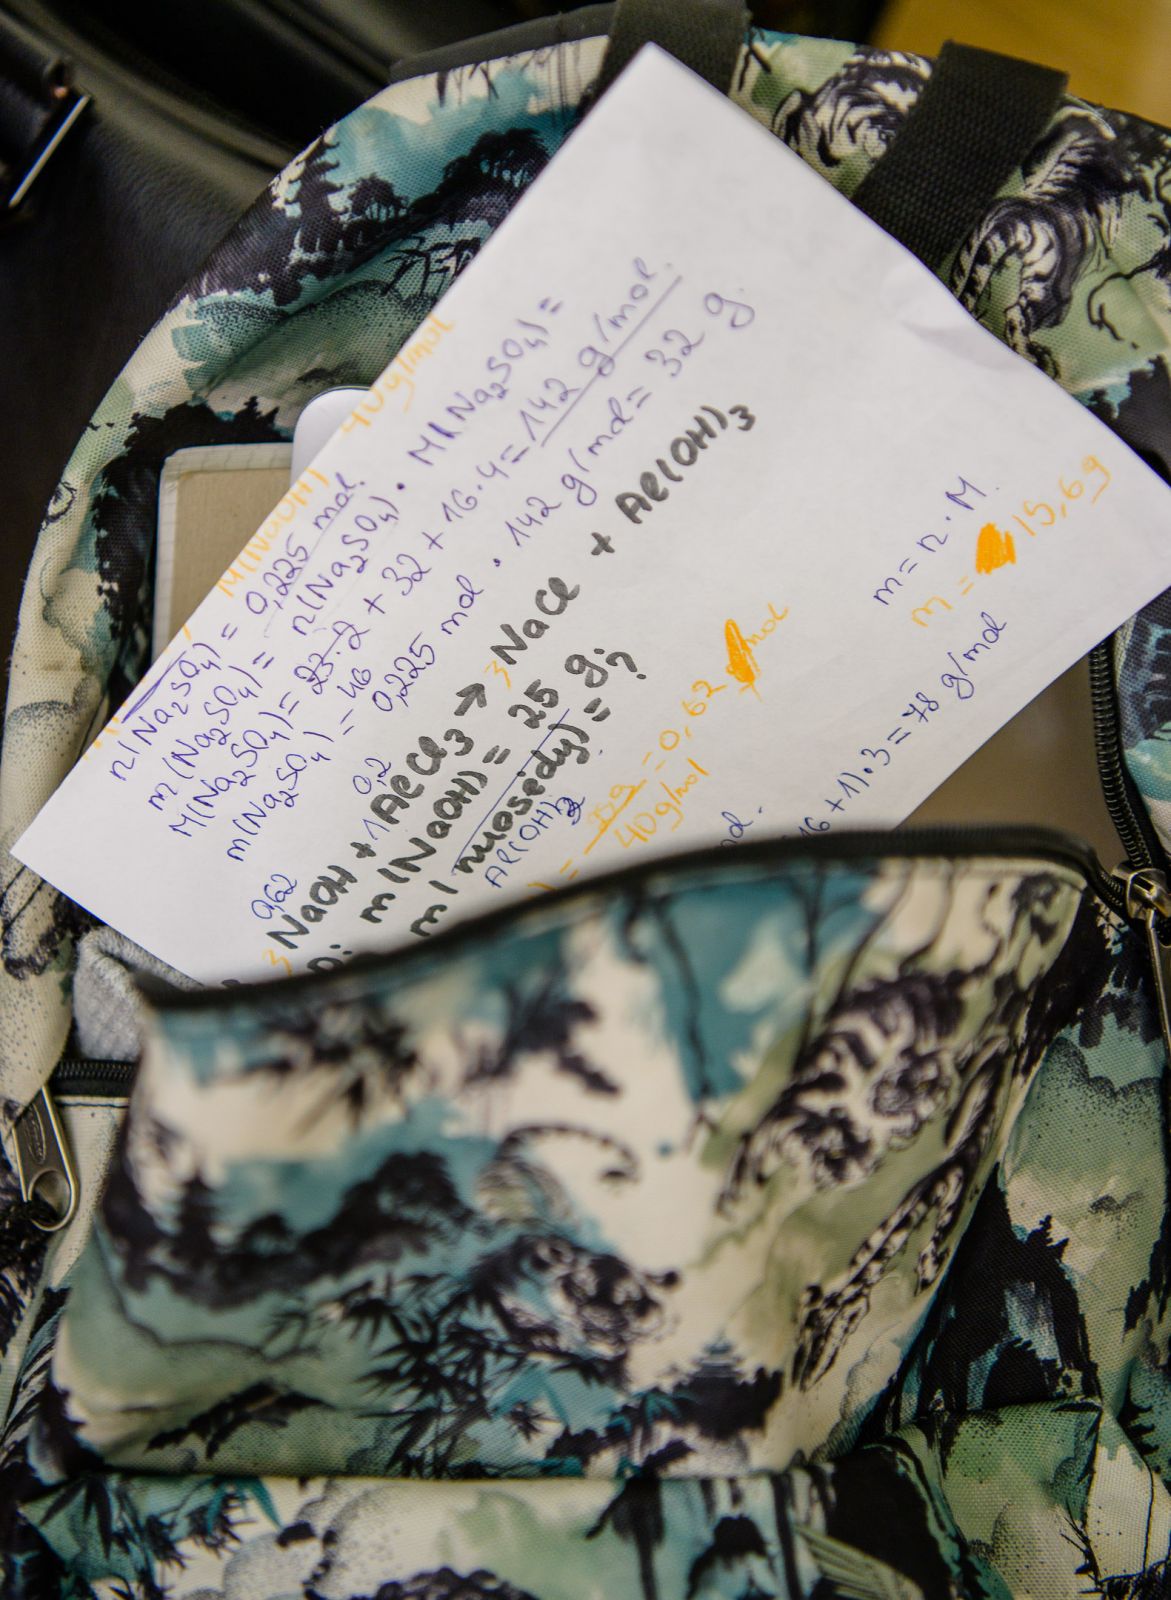 M(NaOH) 40g/mol
n(Na₂SO₄) = 0,225 mol.
m(Na₂SO₄) = n(Na₂SO₄) · M(Na₂SO₄) =
M(Na₂SO₄) = 23·2 + 32 + 16·4 = 142 g/mol.
46
m(Na₂SO₄) = 0,225 mol · 142 g/mol = 32 g.
0,62 0,2
3NaOH + 1AlCl₃ → 3NaCl + Al(OH)₃
m(NaOH) = 25 g;
m(nuosėdų) = ?
Al(OH)₃
= 40g/mol = 0,62 mol
m = n · M.
m = 15,6g
16+1)·3 = 78 g/mol